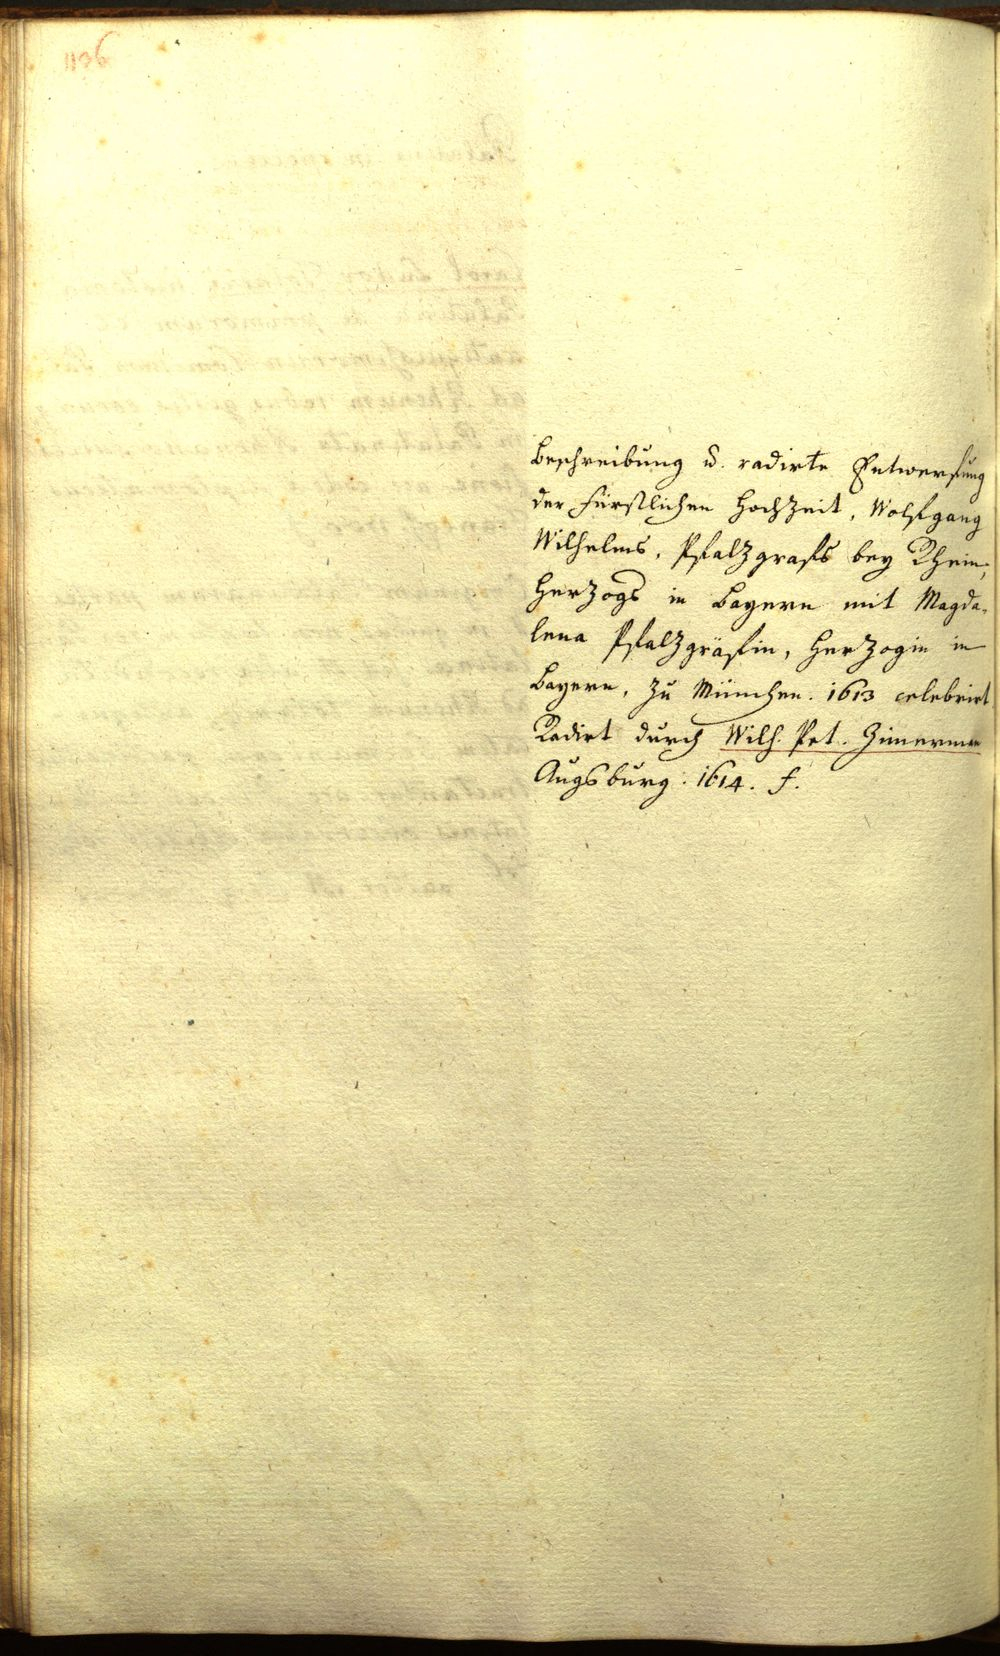 1136
Beschreibung u. radirte Entwerfung
der Fürstlichen Hochzeit, Wolfgang
Wilhelms, Pfalzgrafs bey Rhein,
Herzogs in Bayern mit Magda-
lena Pfalzgräfin, Herzogin in
Bayern, zu München. 1613 celebrirt
Radirt durch Wilh. Pet. Zimerman
Augsburg. 1614. f.